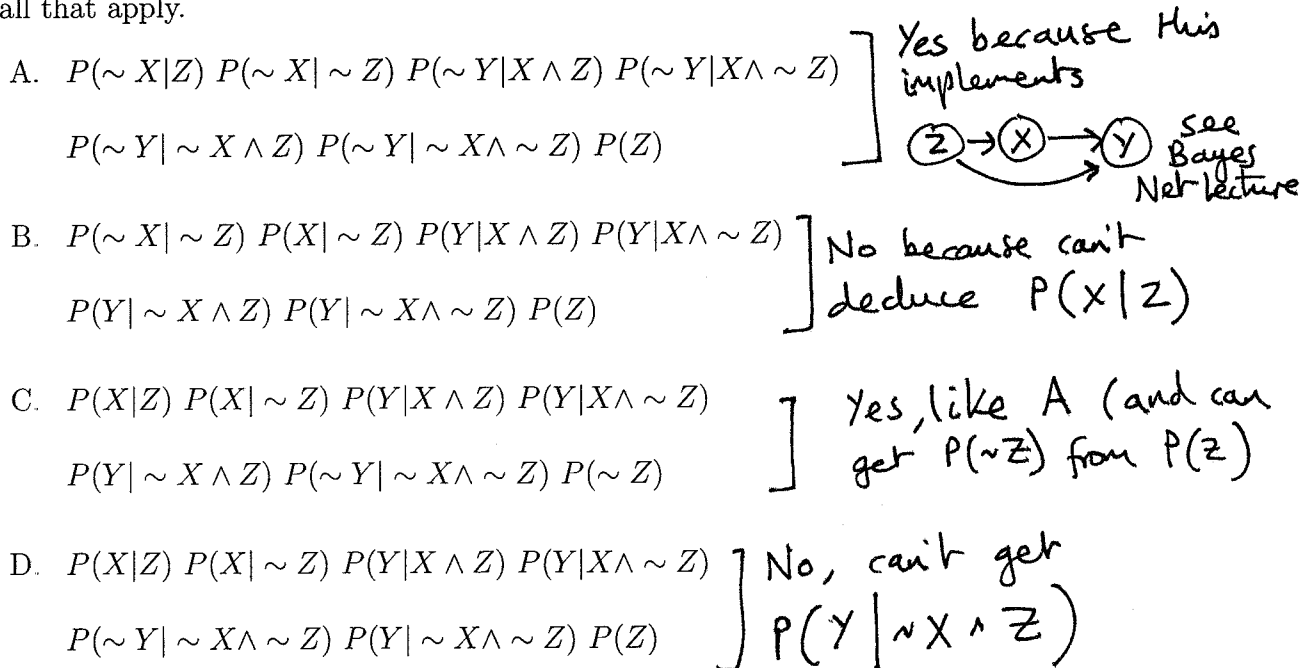 all that apply.
A. P(∼ X|Z) P(∼ X| ∼ Z) P(∼ Y|X ∧ Z) P(∼ Y|X∧ ∼ Z)
P(∼ Y| ∼ X ∧ Z) P(∼ Y| ∼ X∧ ∼ Z) P(Z)
Yes because this
implements
Z → X → Y
see
Bayes
Net lecture
B. P(∼ X| ∼ Z) P(X| ∼ Z) P(Y|X ∧ Z) P(Y|X∧ ∼ Z)
P(Y| ∼ X ∧ Z) P(Y| ∼ X∧ ∼ Z) P(Z)
No because can't
deduce P(X|Z)
C. P(X|Z) P(X| ∼ Z) P(Y|X ∧ Z) P(Y|X∧ ∼ Z)
P(Y| ∼ X ∧ Z) P(∼ Y| ∼ X∧ ∼ Z) P(∼ Z)
Yes, like A (and can
get P(~Z) from P(Z)
D. P(X|Z) P(X| ∼ Z) P(Y|X ∧ Z) P(Y|X∧ ∼ Z)
P(∼ Y| ∼ X∧ ∼ Z) P(Y| ∼ X∧ ∼ Z) P(Z)
No, can't get
P(Y|~X ∧ Z)